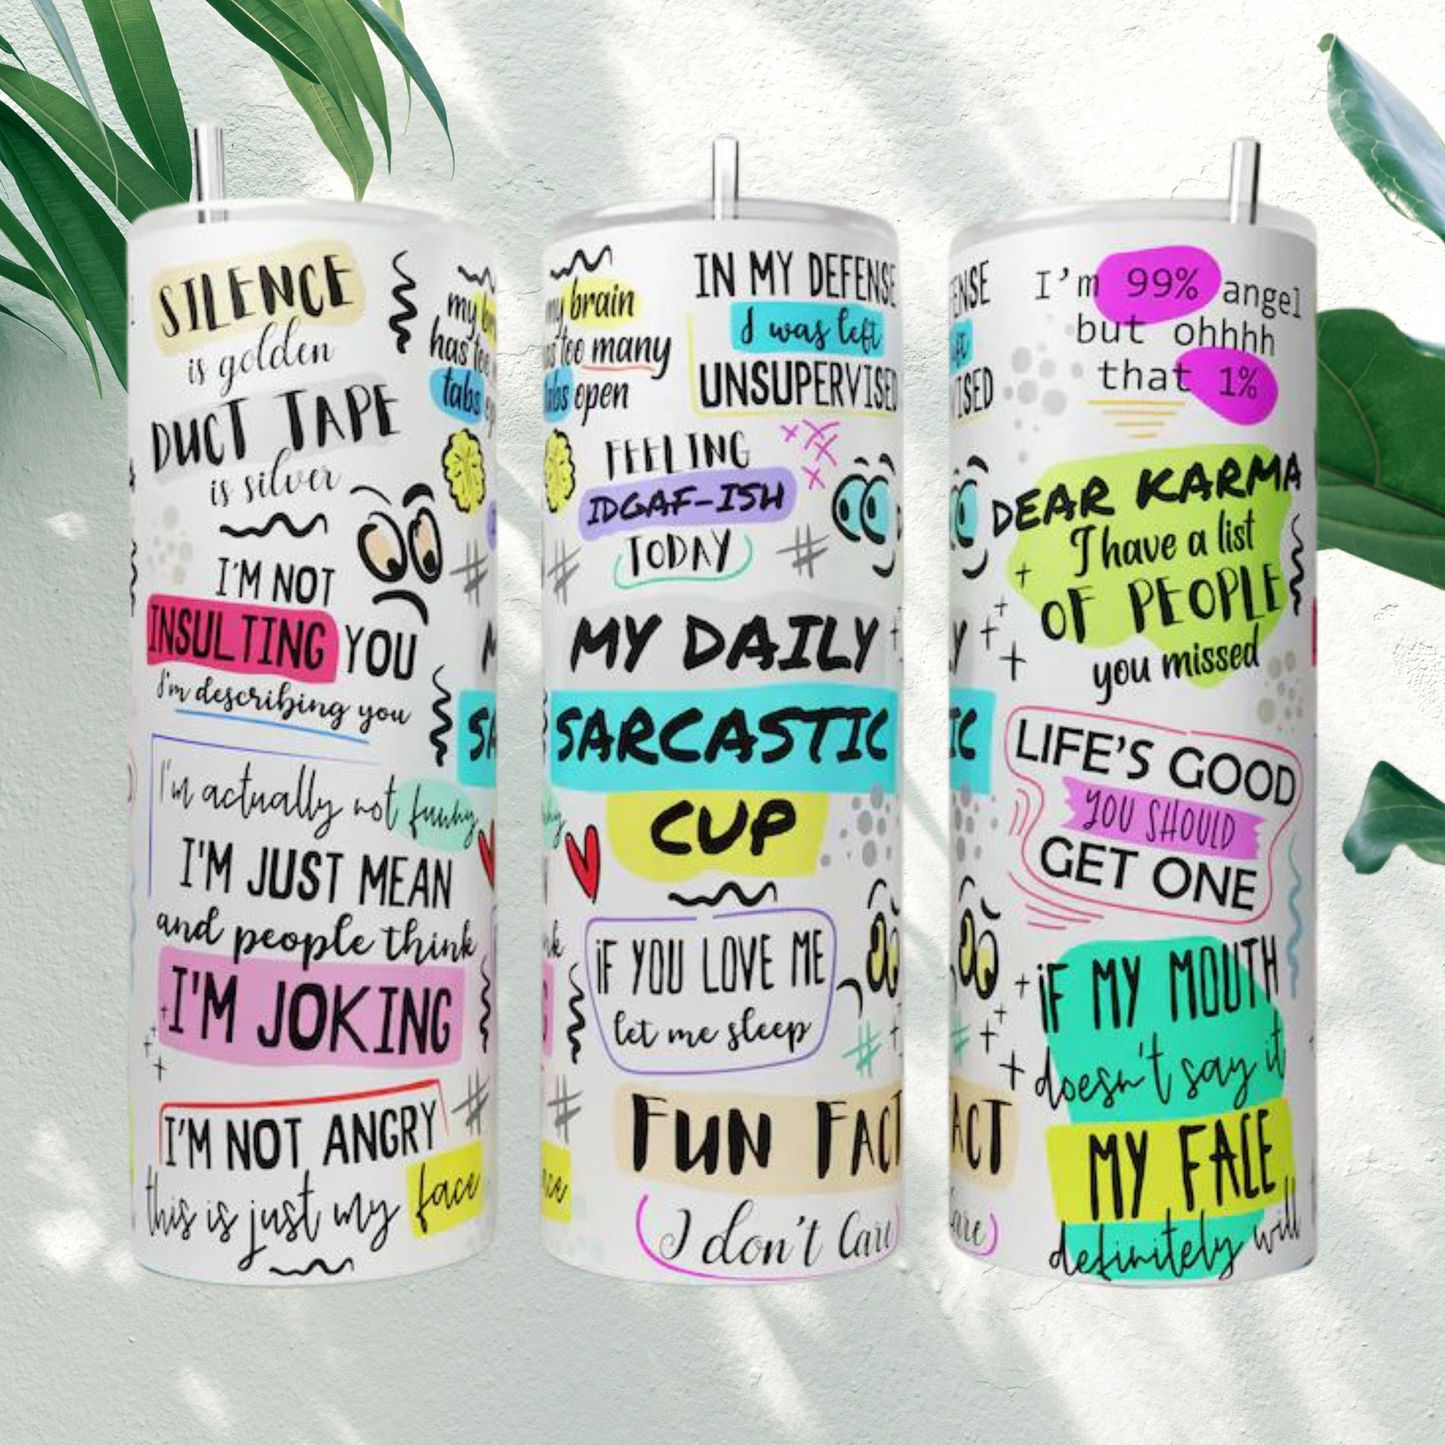 SILENCE
is golden
DUCT TAPE
is silver
I'M NOT
INSULTING YOU
I'm describing you
I'm actually not funny
I'M JUST MEAN
and people think
I'M JOKING
I'M NOT ANGRY
this is just my face
my
has too
tabs
my brain
too many
tabs open
IN MY DEFENSE
I was left
UNSUPERVISED
FEELING
IDGAF-ISH
TODAY
MY DAILY
SARCASTIC
CUP
IF YOU LOVE ME
let me sleep
FUN FACT
I don't Care
I'm 99% angel
but ohhhh
that 1%
DEAR KARMA
I have a list
OF PEOPLE
you missed
LIFE'S GOOD
YOU SHOULD
GET ONE
IF MY MOUTH
doesn't say it
MY FACE
definitely will